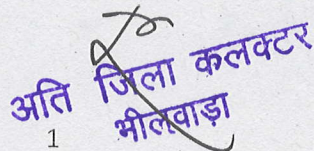 अति जिला कलक्टर
भीलवाड़ा
1